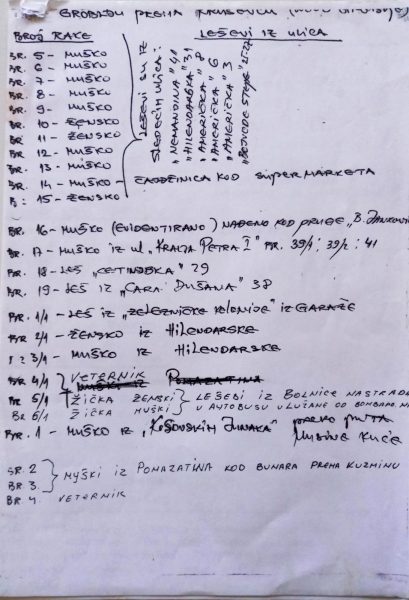 GROBLJU PREMA KRUŠEVCU
BROJ RAKE LEŠEVI IZ ULICA
BR. 5 - MUŠKO
BR. 6 - MUŠKO
BR. 7 - MUŠKO
BR. 8 - MUŠKO
BR. 9 - MUŠKO
BR. 10 - ŽENSKO
BR. 11 - ŽENSKO
BR. 12 - MUŠKO
BR. 13 - MUŠKO
LEŠEVI SU IZ
SLEDEĆIH ULICA:
"NEMANJINA" 41
"HILENDARSKA" 31
"AMERIČKA" 8
"AMERIČKA" 6
"AMERIČKA" 3
"VOJVODE STEPE"
BR. 14 - MUŠKO - ZAJEDNICA KOD SUPERMARKETA
B: 15 - ŽENSKO
BR. 16 - MUŠKO (EVIDENTIRANO) NAĐENO KOD PRUGE
BR. 17 - MUŠKO IZ UL "KRALJA PETRA I" BR. 39/1; 39/2; 41
BR. 18 - LEŠ "CETINJSKA" 29
BR. 19 - LEŠ IZ "CARA DUŠANA" 38
BR. 1/1 - LEŠ IZ "ŽELEZNIČKE KOLONIJE" IZ GARAŽE
BR 2/1 - ŽENSKO IZ HILENDARSKE
3/1 - MUŠKO IZ HILENDARSKE
BR 4/1 VETERNIK
BR 5/1 ŽIČKA ŽENSKI LEŠEVI IZ BOLNICE NASTRADA
BR 6/1 ŽIČKA MUŠKI U AUTOBUSU U LUŽANE OD BOMBARD
BR. 1 - MUŠKO IZ "KOSOVSKIH JUNAKA" KUĆE
BR. 2
BR. 3 - MUŠKI IZ POMAZATINA KOD BUNARA PREMA KUZMINU
BR 4. VETERNIK